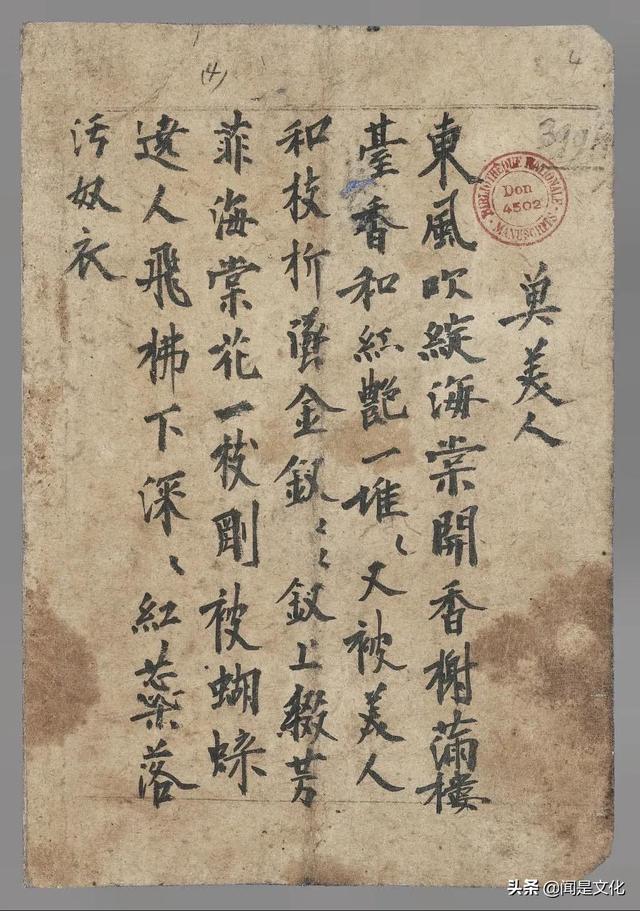 (4)
4
BIBLIOTHÈQUE NATIONALE
Don
4502
MANUSCRITS
虞美人
東風吹綻海棠開香榭滿樓
臺香和紅艷一堆〻又被美人
和枝折墜金釵〻〻釵上綴芳
菲海棠花一枝剛被蝴蝶
遶人飛拂下深〻紅蕊落
污奴衣
头条 @闻是文化